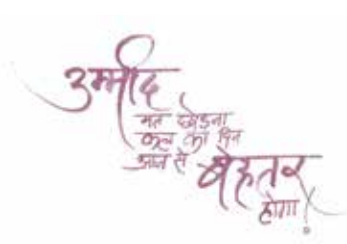 उम्मीद
मत छोड़ना
कल का दिन
आज से बेहतर
होगा!